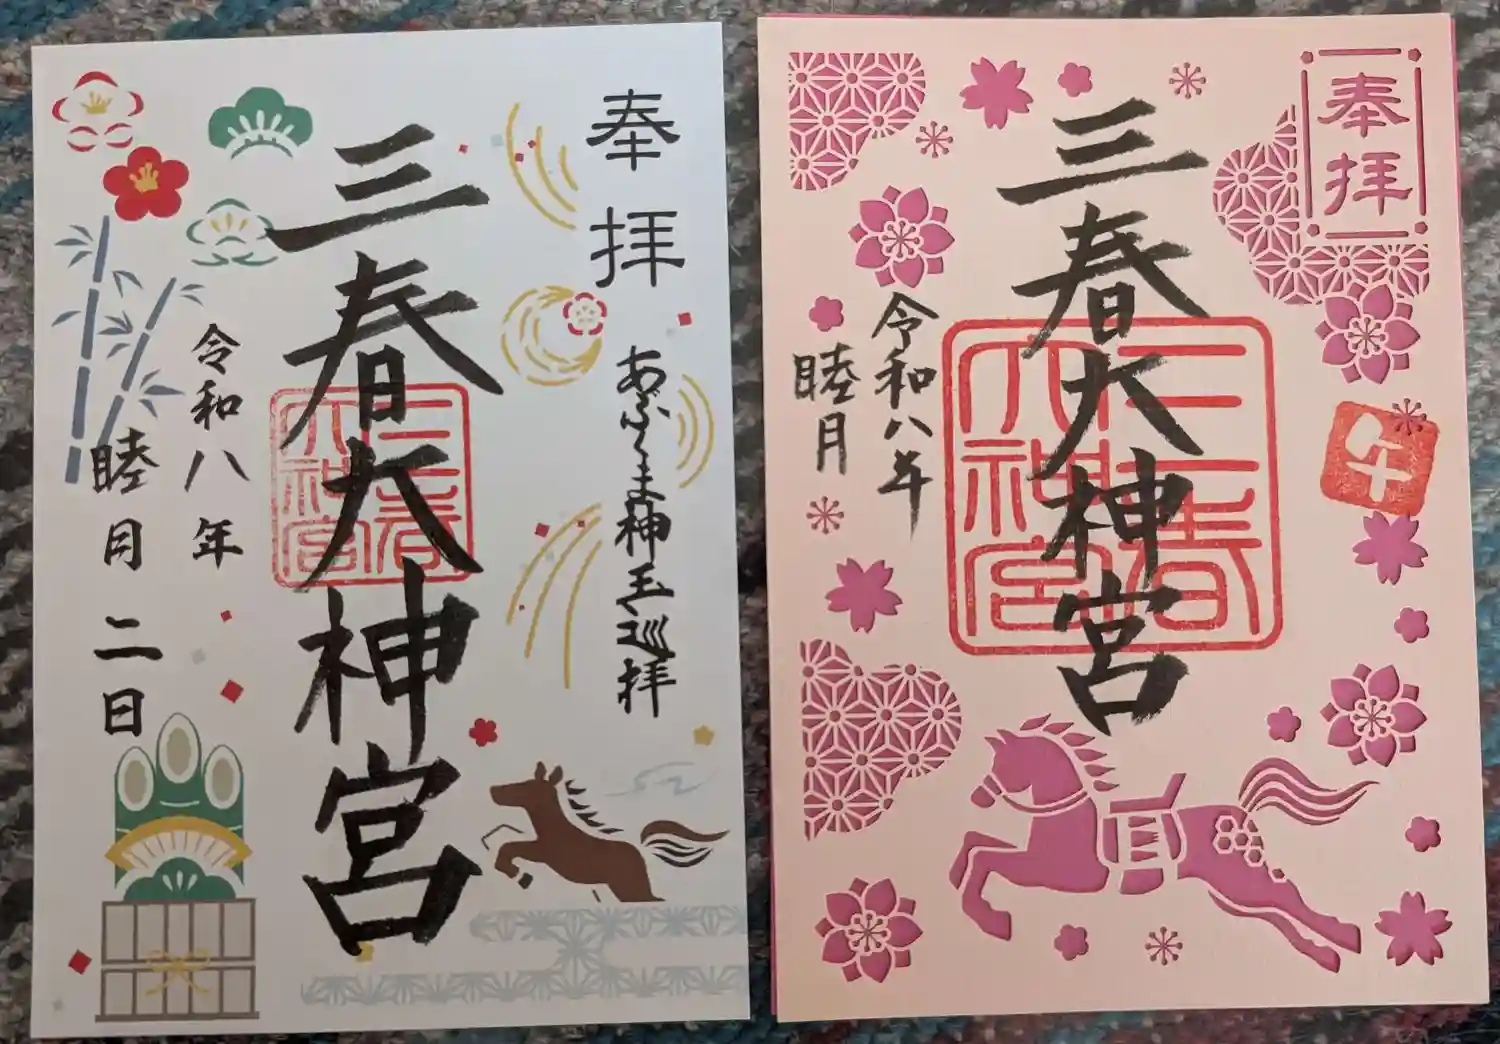 奉拝
あぶくま神玉巡拝
三春大神宮
三春大神宮
令和八年
睦月二日
奉拝
午
三春大神宮
三春大神宮
令和八年
睦月